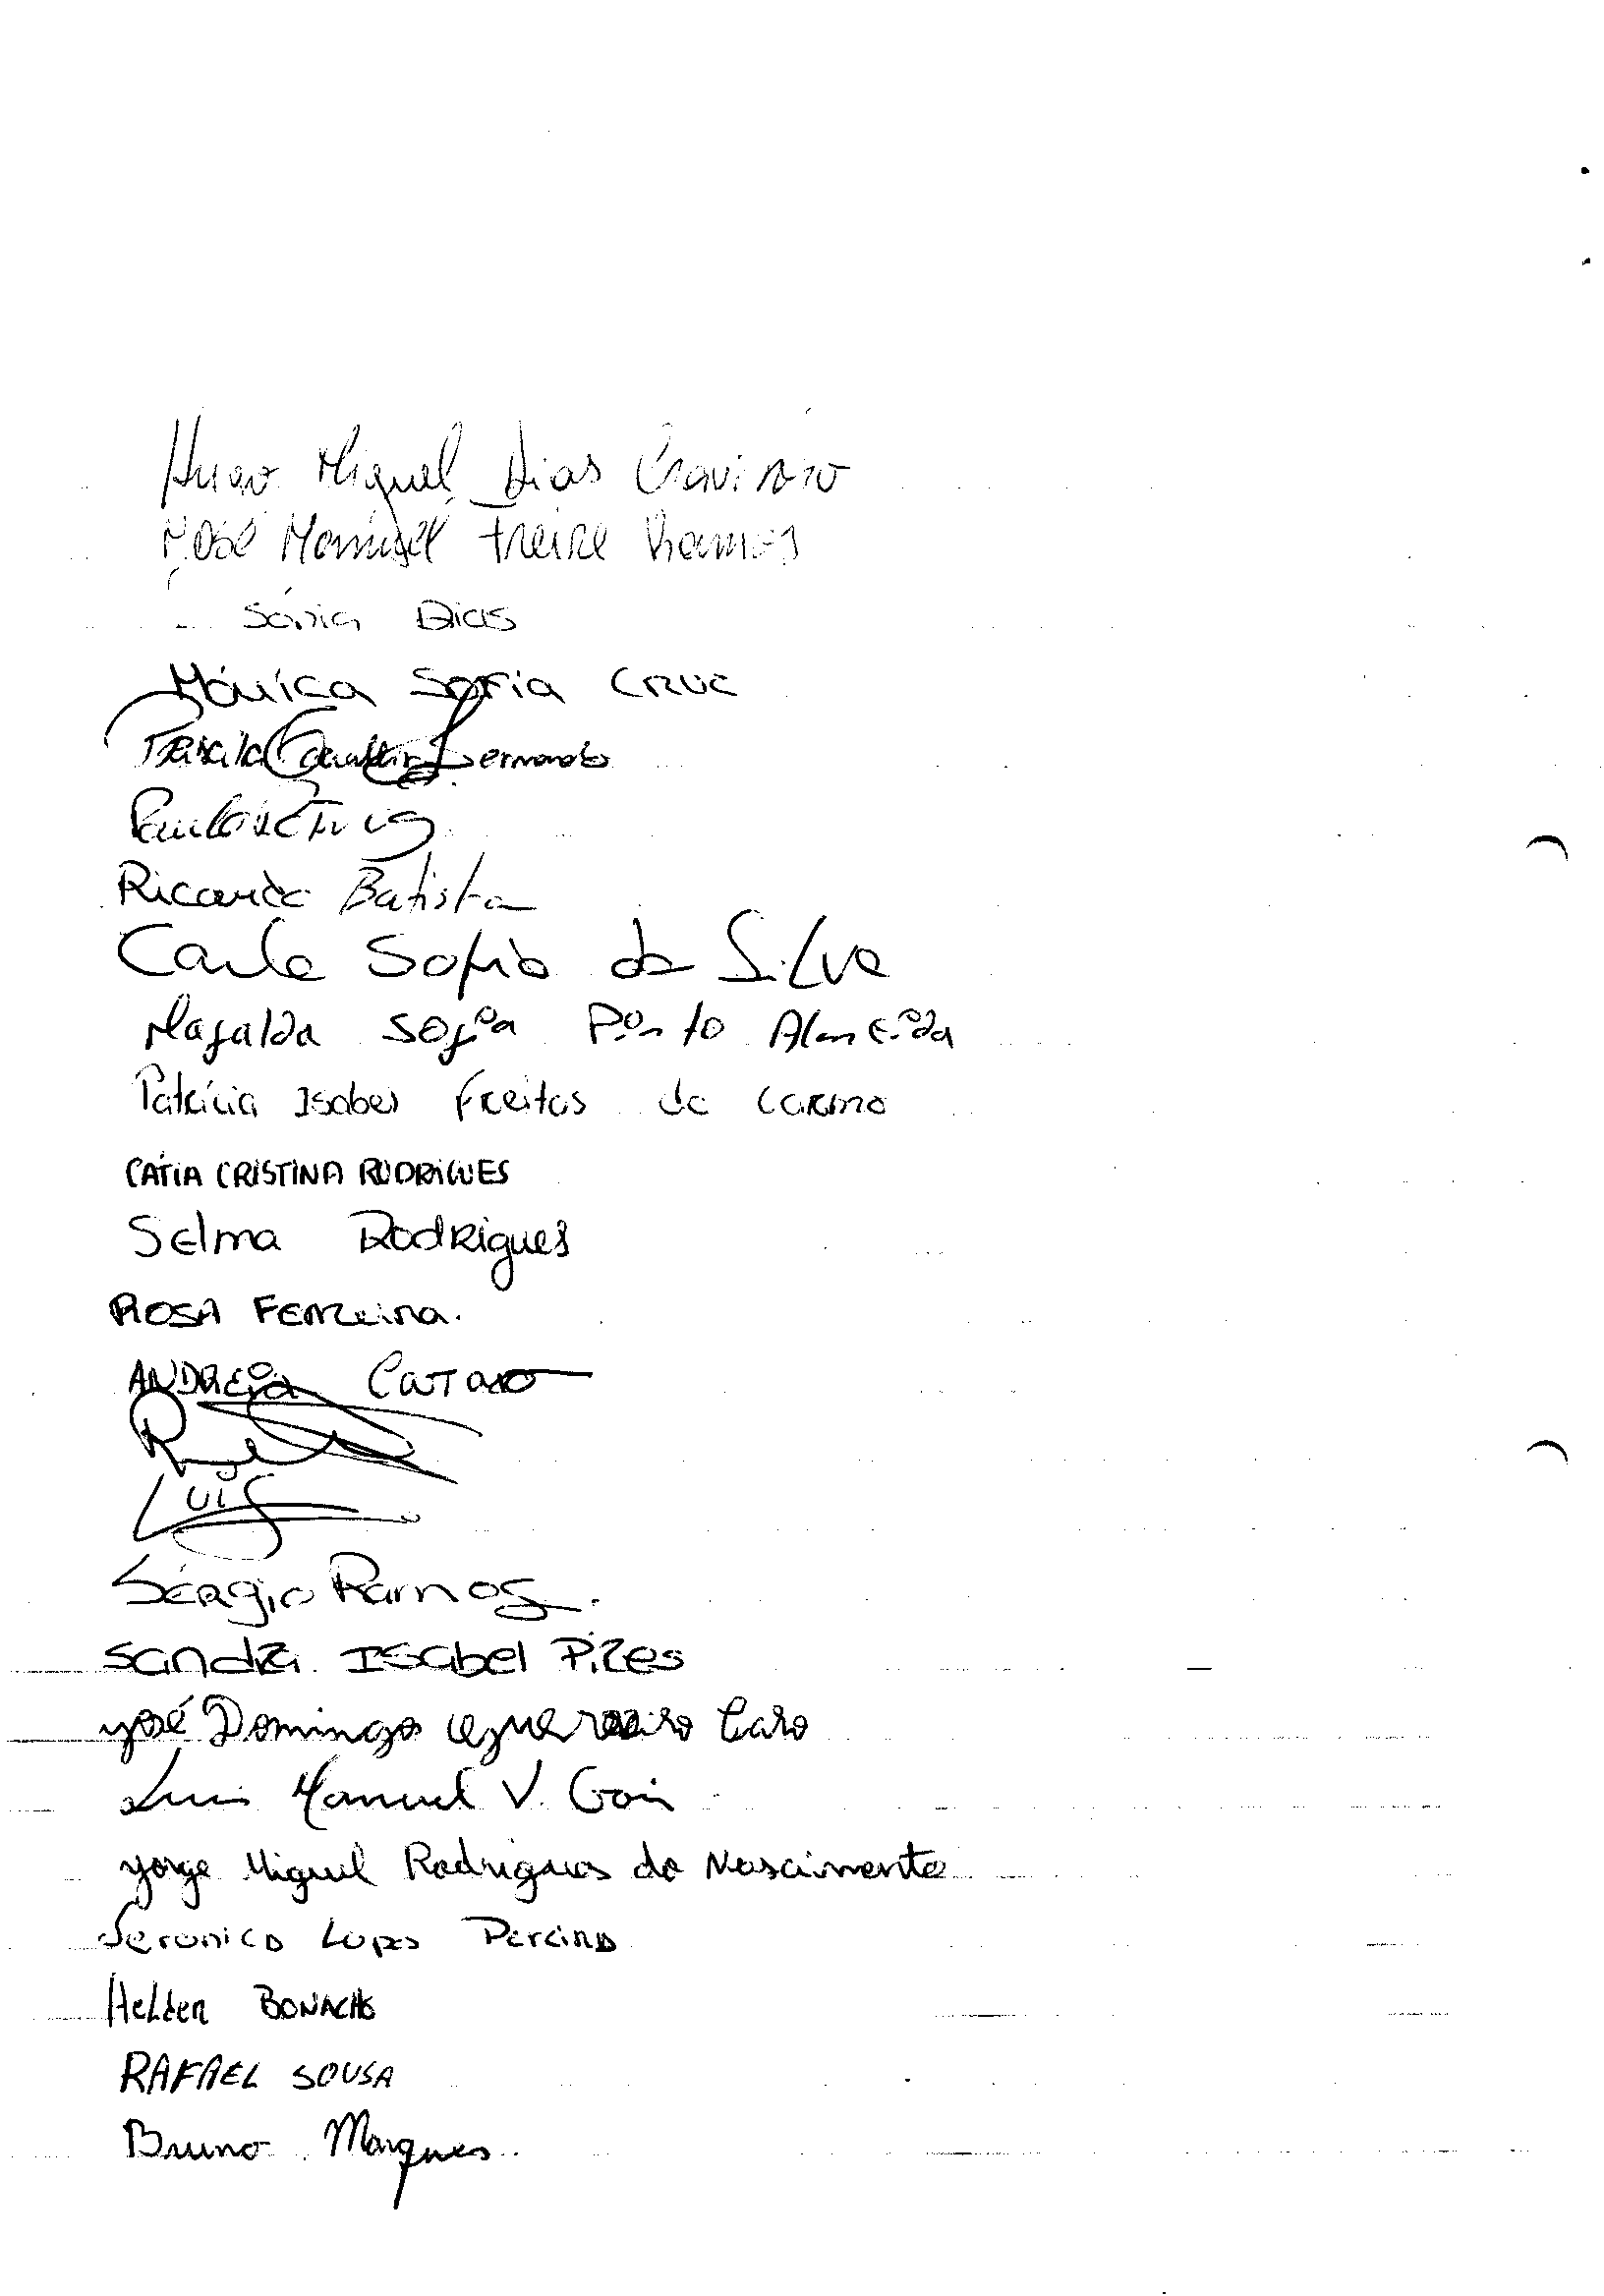 Hugo Miguel Dias
José Manuel Freire Ramos
Sónia Dias
Mónica Sofia Cruz
Ricardo Batista
Carla Sofia da Silva
Mafalda Sofia Pinto Almeida
Patrícia Isabel Freitas do Carmo
CÁTIA CRISTINA RODRIGUES
Selma Rodrigues
ROSA FERReira.
ANDREia
Luis
Sérgio Ramos.
Sandra Isabel Pires
José Domingos Guerreiro Caro
Luis Manuel V. Gois
Jorge Miguel Rodrigues do Nascimento
Veronica Lopes
Helder BONACHO
RAFAEL SOUSA
Bruno Marques